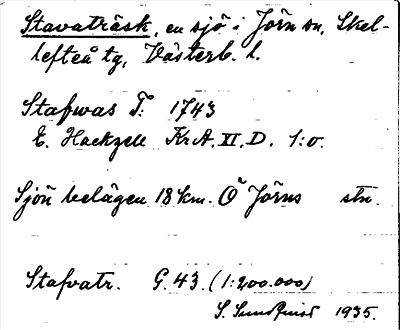 Stavaträsk, en sjö i Jörn sn, Skel-
lefteå tg, Västerb. l.
Stafwas T: 1743
E. Hackzell KrA. XI, D. 1:o.
Sjön belägen 18 km. Ö Jörns stn.
Stafvatr. G. 43. (1:200.000)
S. Sundquist 1935.